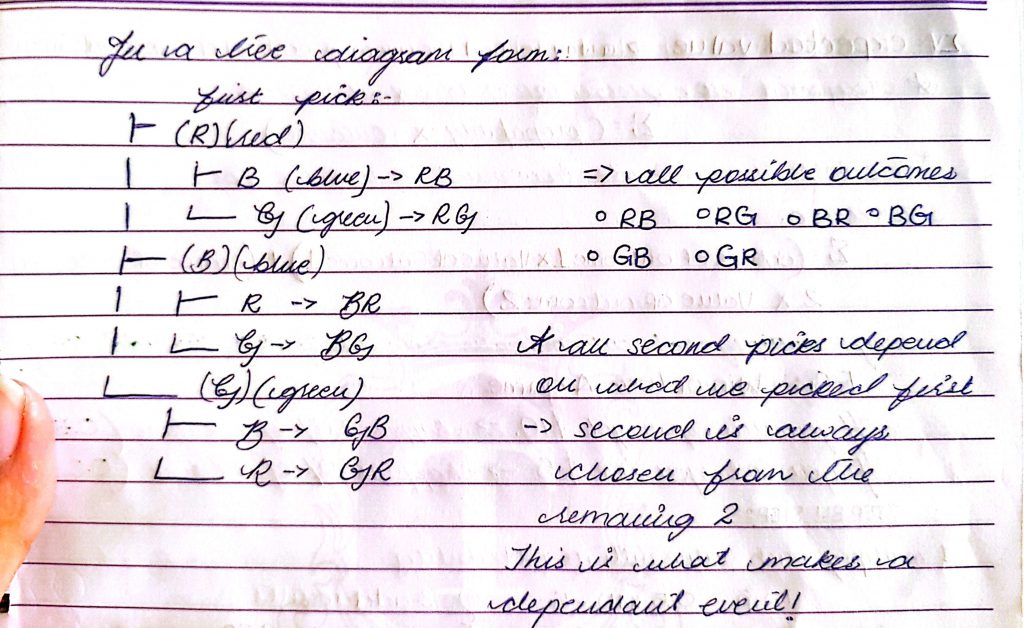 In a tree diagram form:
first pick:-
├ (R)(red)
│ ├ B (blue) -> RB => all possible outcomes
│ └ G (green) -> RG ○ RB ○ RG ○ BR ○ BG
├ (B)(blue) ○ GB ○ GR
│ ├ R -> BR
│ └ G -> BG * all second picks depend
└ (G)(green) on what we picked first
├ B -> GB -> second is always
└ R -> GR chosen from the
remaning 2
This is what makes a
dependant event!